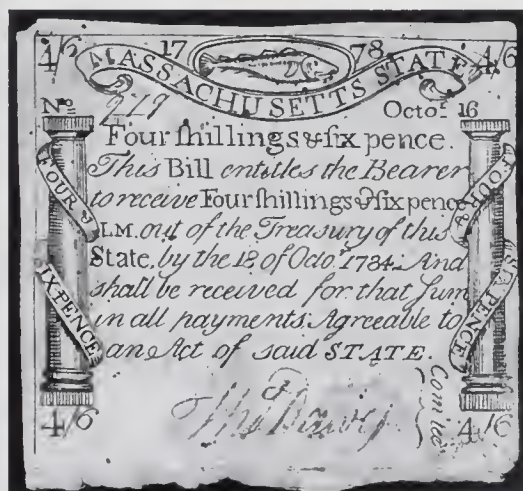 4/6 17 78 4/6
MASSACHUSETTS STATE
No. 219 Octor. 16
Four ſhillings & ſix pence.
This Bill entitles the Bearer
to receive Four ſhillings & ſix pence
LM. out of the Treasury of this
State, by the 18 of Octor. 1784. And
shall be received for that Sum
in all payments. Agreeable to
an Act of said STATE.
FOUR &
IX PENCE
FOUR &
SIX PENCE
Thos Dawes
Comtee
4/6 4/6